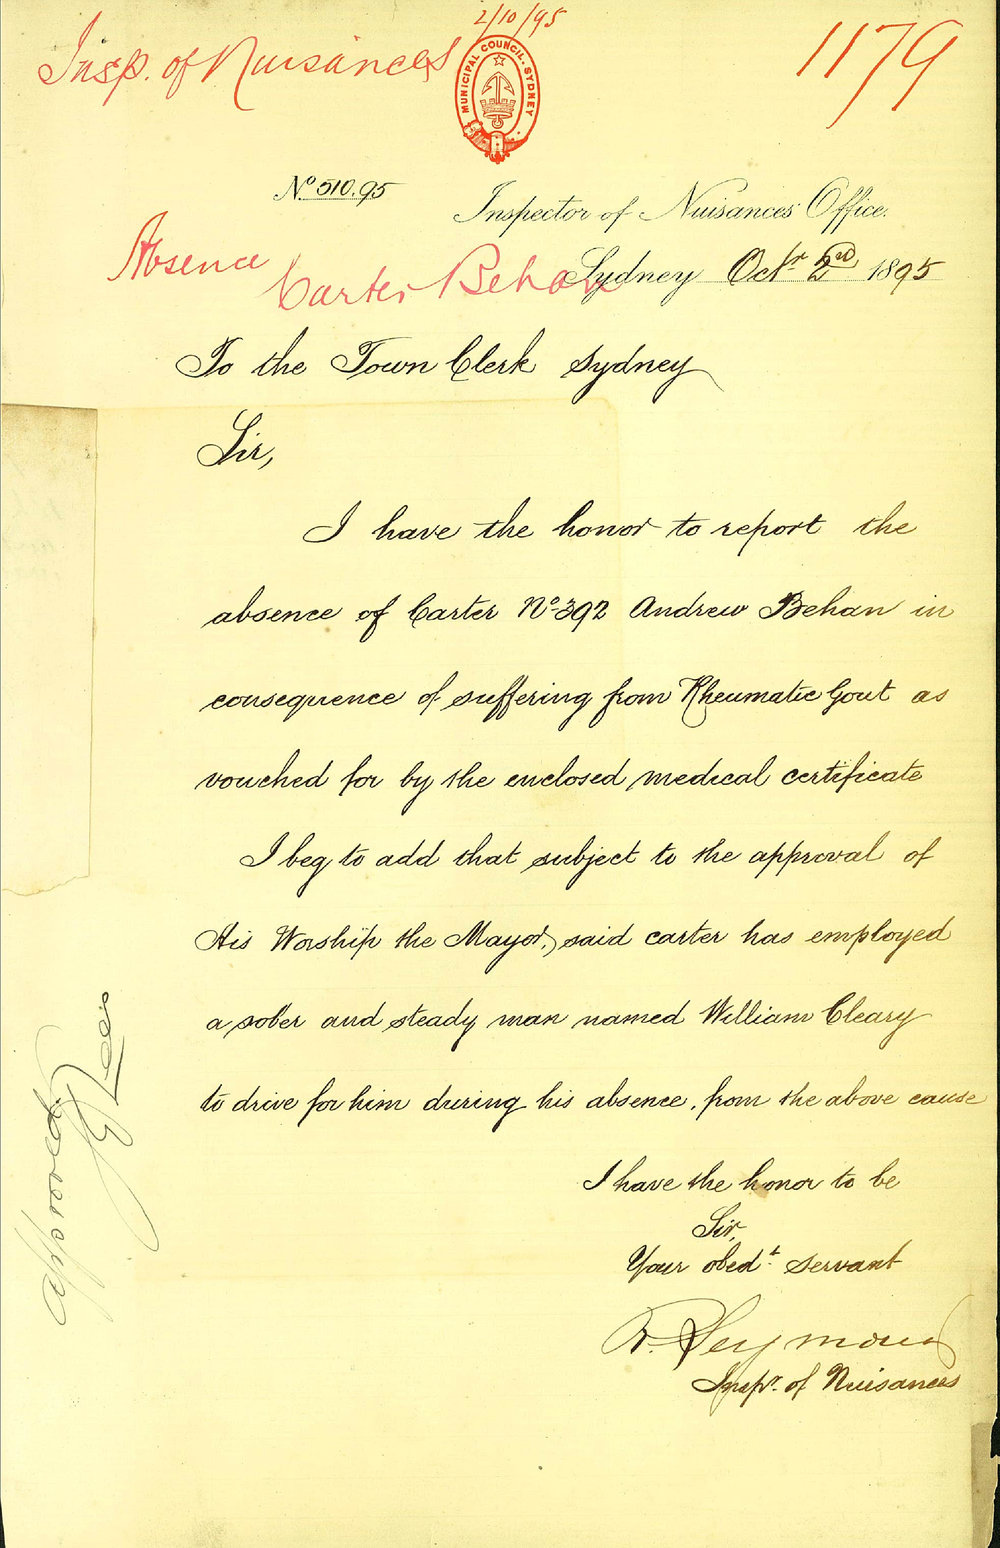 2/10/95
Insp. of Nuisances
1179
MUNICIPAL COUNCIL. SYDNEY
No 510.95
Inspector of Nuisances Office.
Absence
Carter Behan
Sydney Octr 2nd 1895
To the Town Clerk Sydney
Sir,
I have the honor to report the
absence of Carter No 392 Andrew Behan in
consequence of suffering from Rheumatic Gout as
vouched for by the enclosed medical certificate
I beg to add that subject to the approval of
His Worship the Mayor, said carter has employed
a sober and steady man named William Cleary
to drive for him during his absence, from the above cause
I have the honor to be
Sir,
Your obedt servant
R. Seymour
Inspr. of Nuisances
Approved